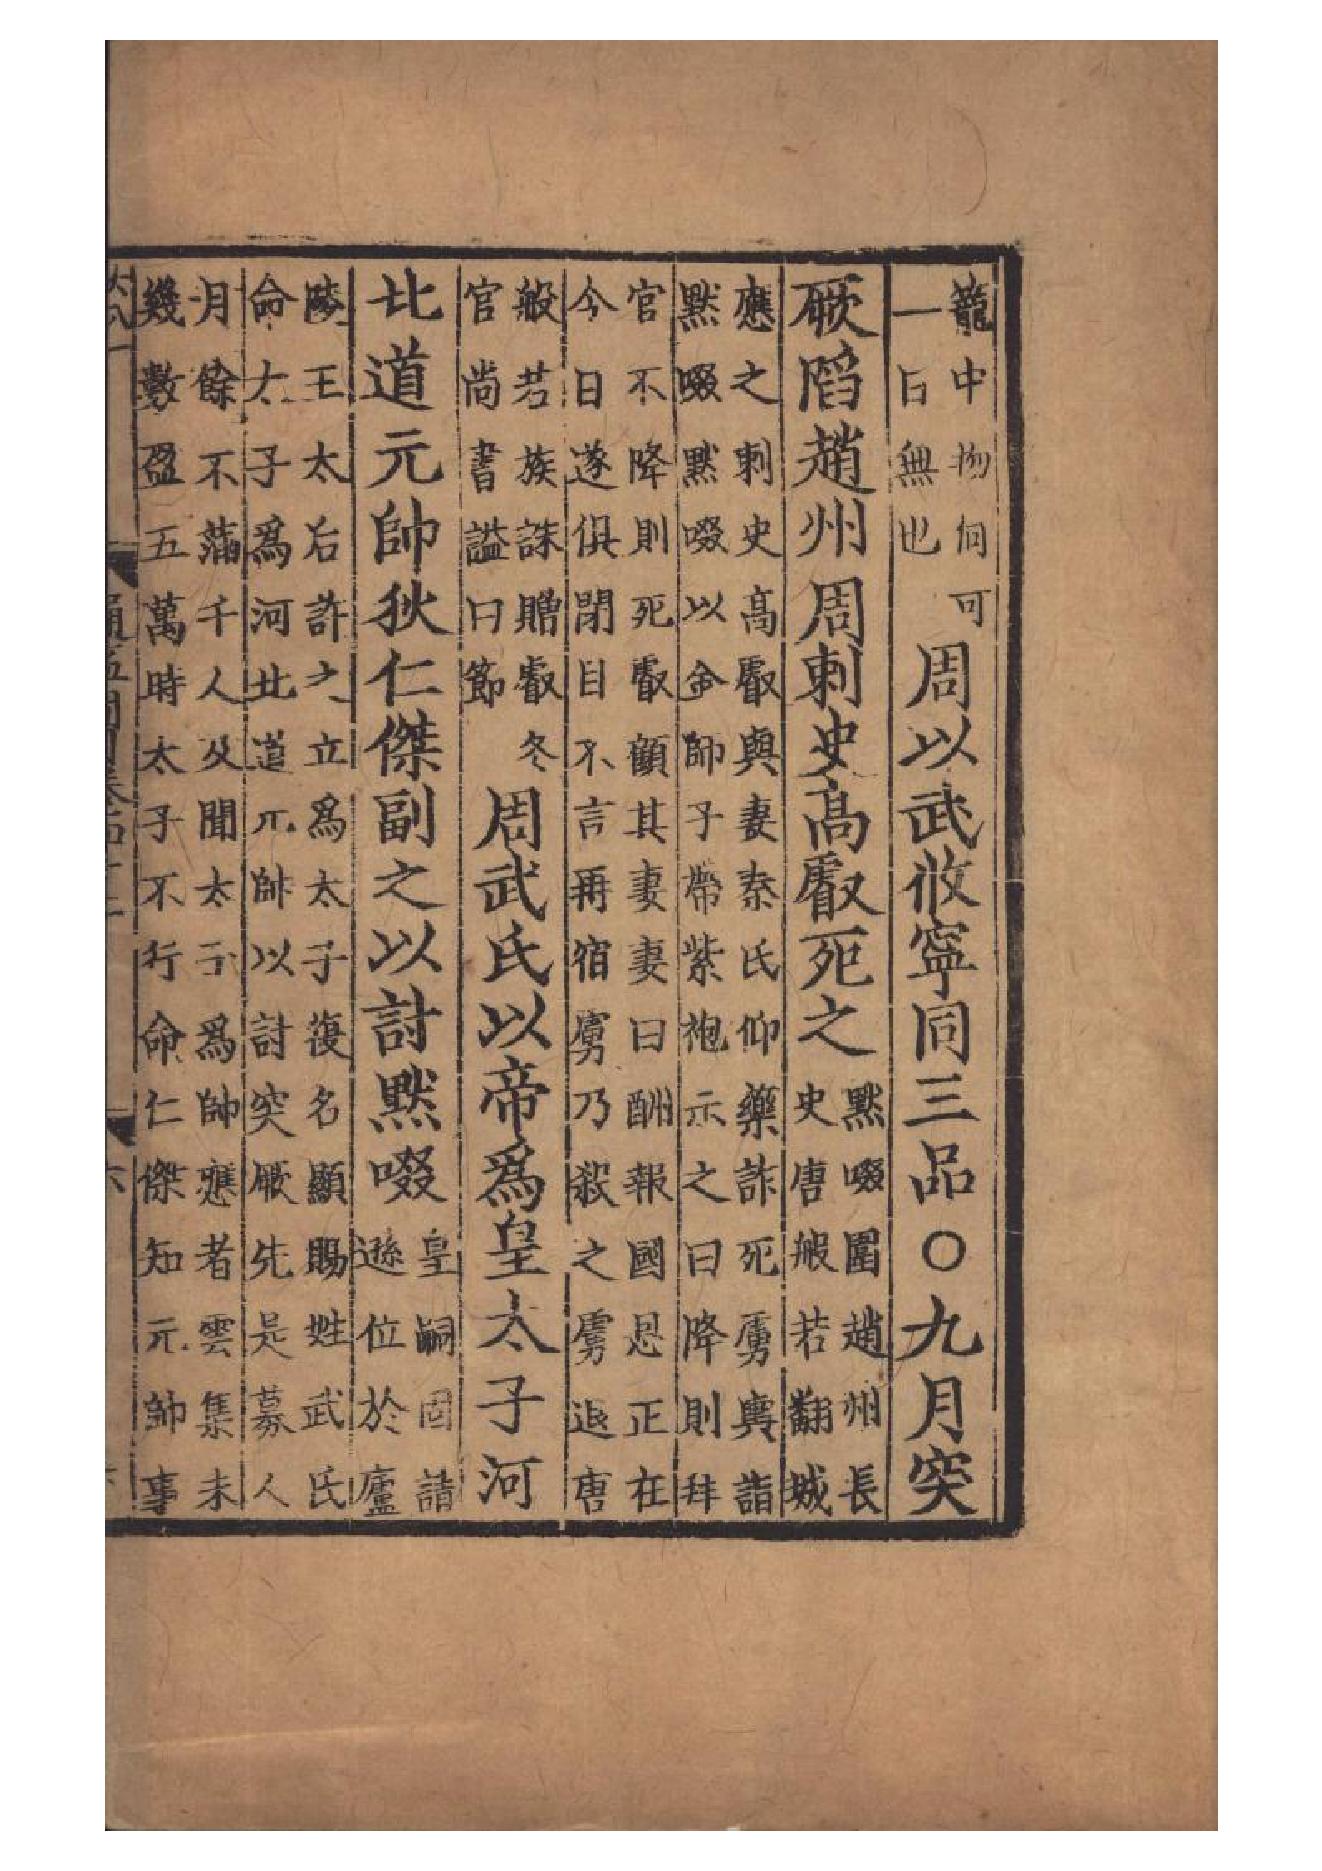 籠中物何可
一日無也
周以武攸寧同三品○九月突
厥陷趙州周刺史高叡死之
默啜圍趙州長
史唐般若翻城
應之刺史高叡與妻秦氏仰藥詐死虜輿詣
默啜默啜以金師子帶紫袍示之曰降則拜
官不降則死叡顧其妻妻曰酬報國恩正在
今日遂俱閉目不言再宿虜乃殺之虜退唐
般若族誅贈叡冬
官尚書謚曰節
周武氏以帝爲皇太子河
北道元帥狄仁傑副之以討默啜
皇嗣固請
遜位於廬
陵王太后許之立爲太子復名顯賜姓武氏
命太子爲河北道元帥以討突厥先是募人
月餘不滿千人及聞太子爲帥應者雲集未
幾數盈五萬時太子不行命仁傑知元帥事